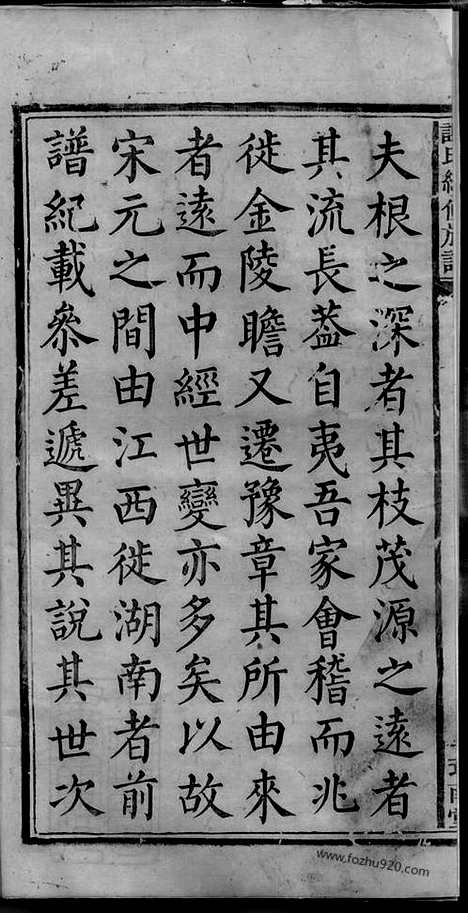 夫根之深者其枝茂源之遠者
其流長葢自夷吾家會稽而兆
徙金陵瞻又遷豫章其所由來
者遠而中經世變亦多矣以故
宋元之間由江西徙湖南者前
譜紀載叅差遞異其說其世次
www.fozhu920.com